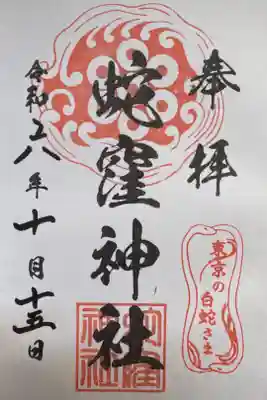 奉拝
蛇窪神社
令和六年十月十五日
東京の
白蛇さま
蛇窪
神社